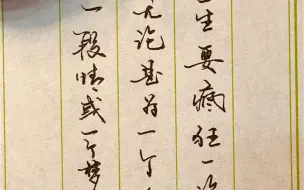 生要疯狂一次
无论是为一个
一段情或一个梦